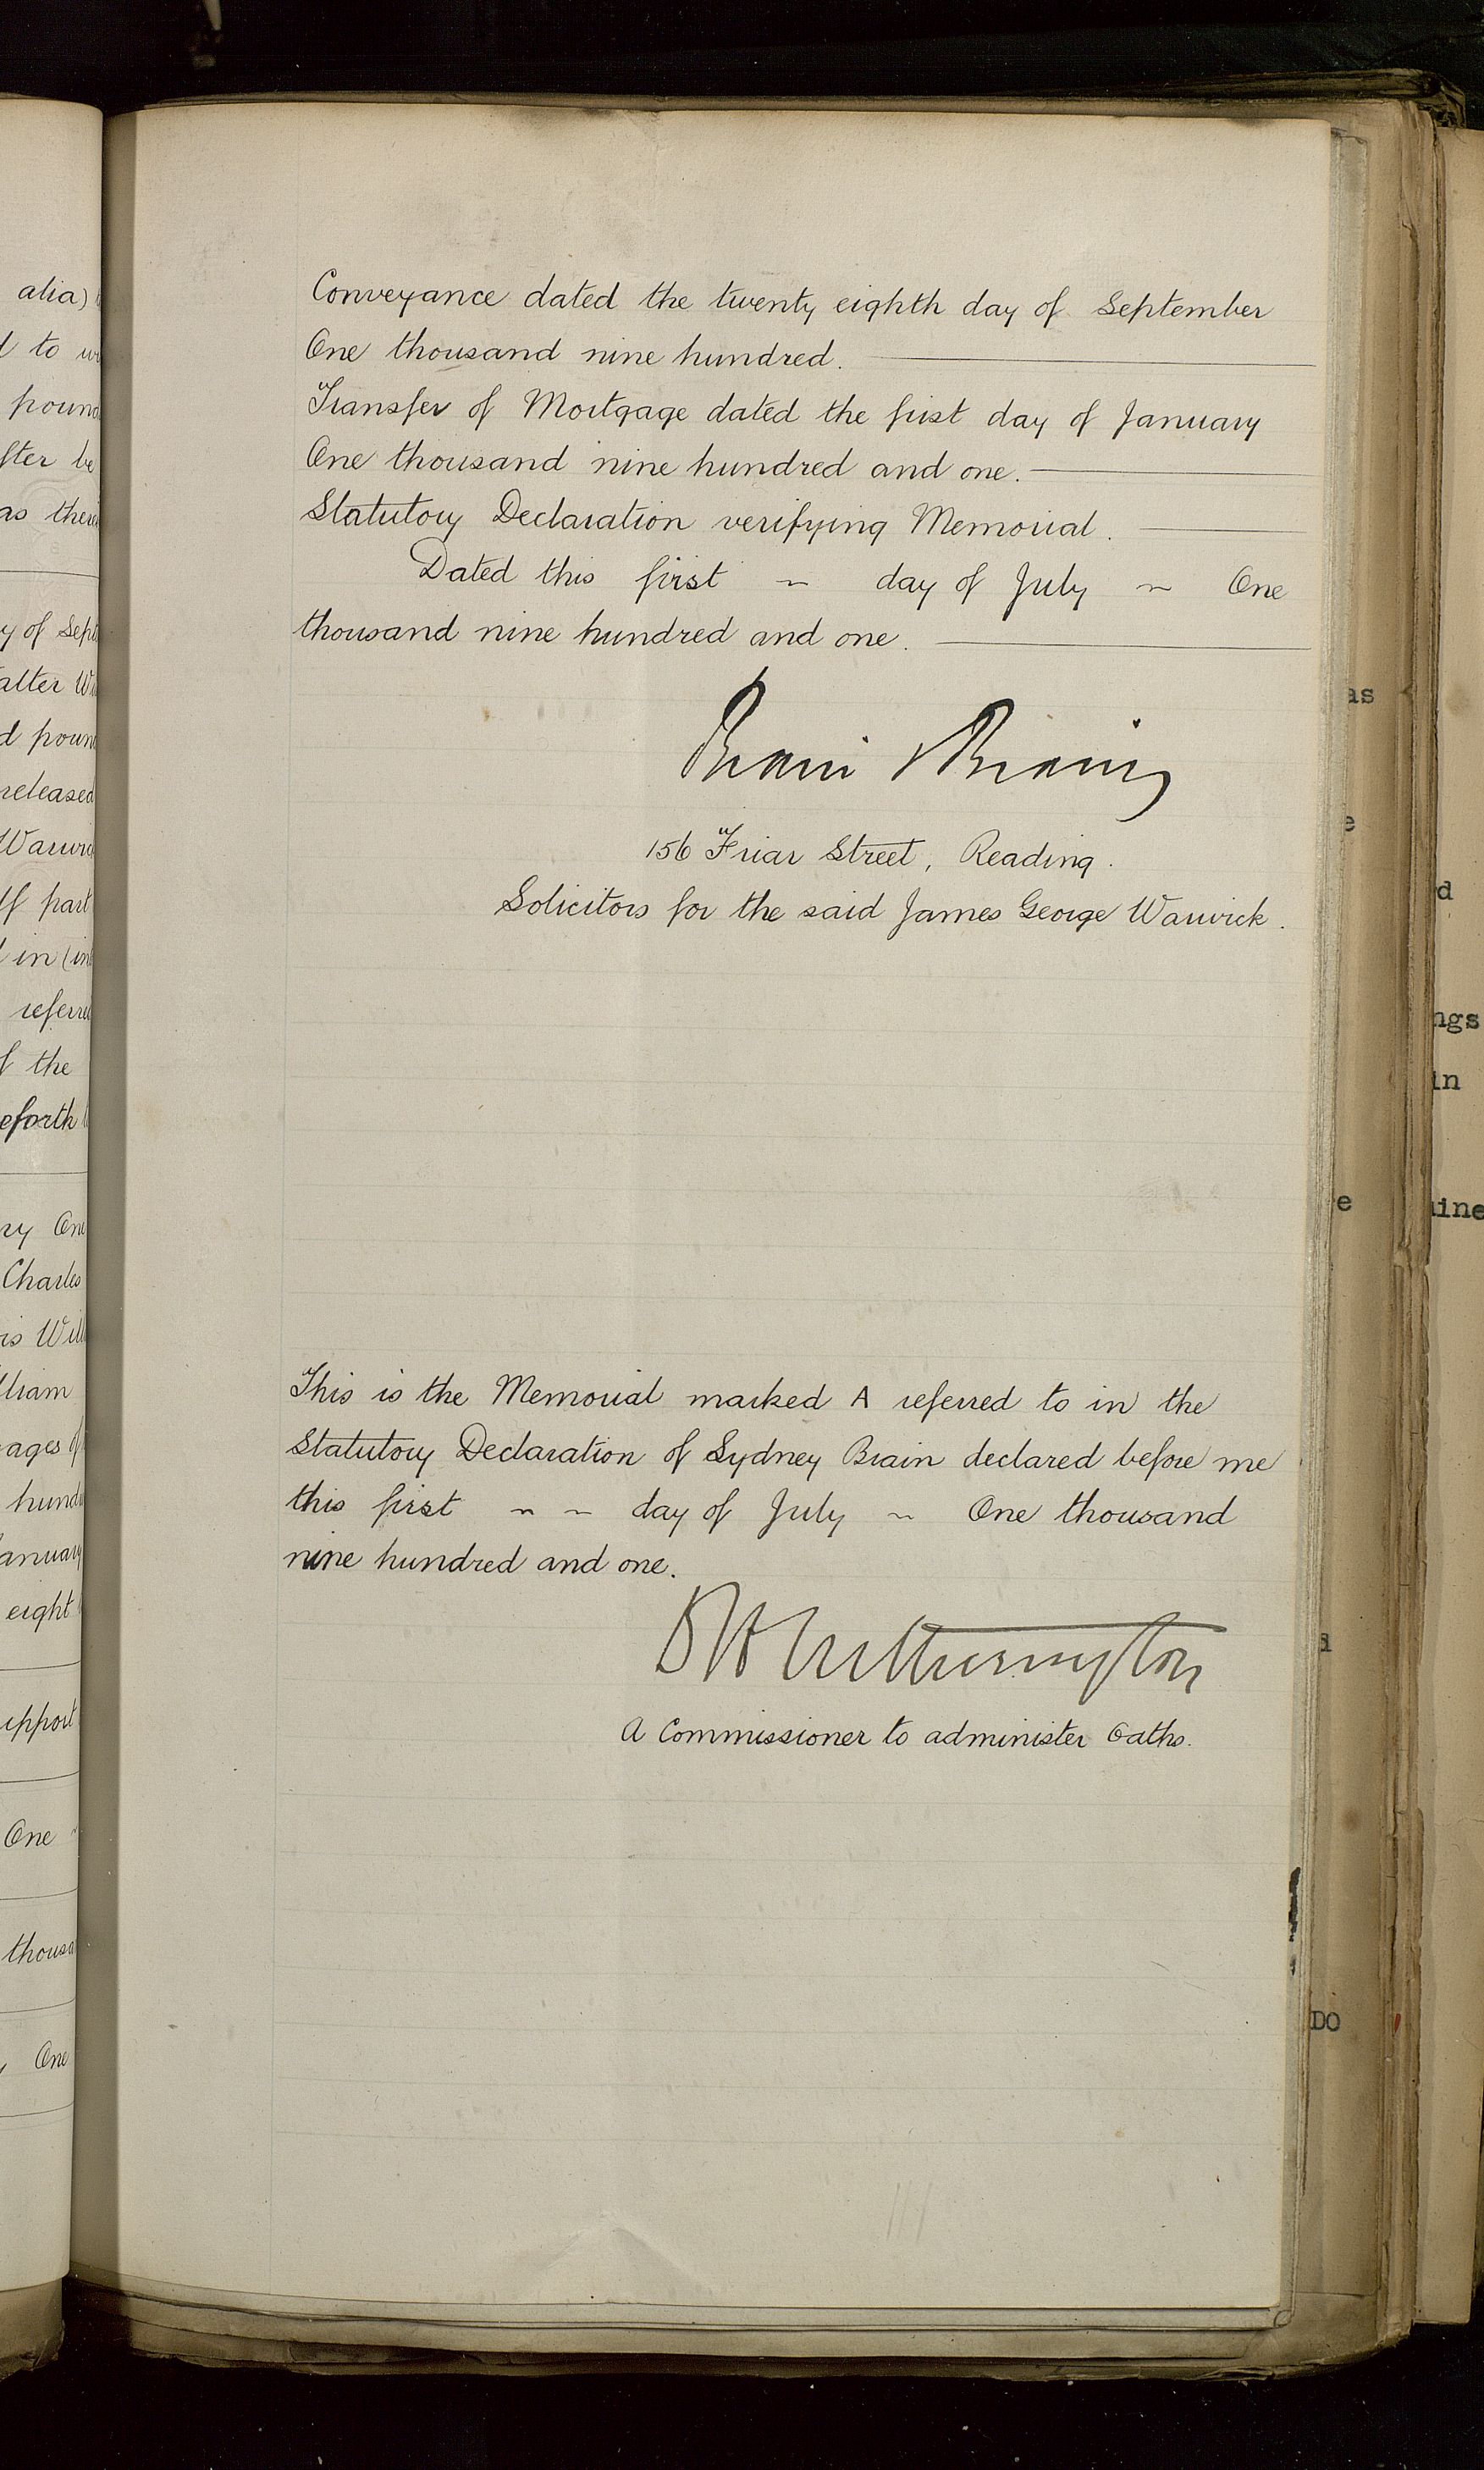 Conveyance dated the twenty eighth day of September
One thousand nine hundred.
Transfer of Mortgage dated the first day of January
One thousand nine hundred and one.
Statutory Declaration verifying Memorial.
Dated this first ~ day of July ~ One
thousand nine hundred and one.
Brain & Brain
156 Friar Street, Reading.
Solicitors for the said James George Warwick.
This is the Memorial marked A referred to in the
Statutory Declaration of Sydney Brain declared before me
this first ~ ~ day of July ~ One thousand
nine hundred and one.
A Commissioner to administer Oaths.
alia)
to
pound
be
as
y of Sept
alter
d
released
part
in
referred
the
eforth
One
Charles
is Will
lliam
ages
eight
One
One
as
e
d
ngs
in
e
ine
DO